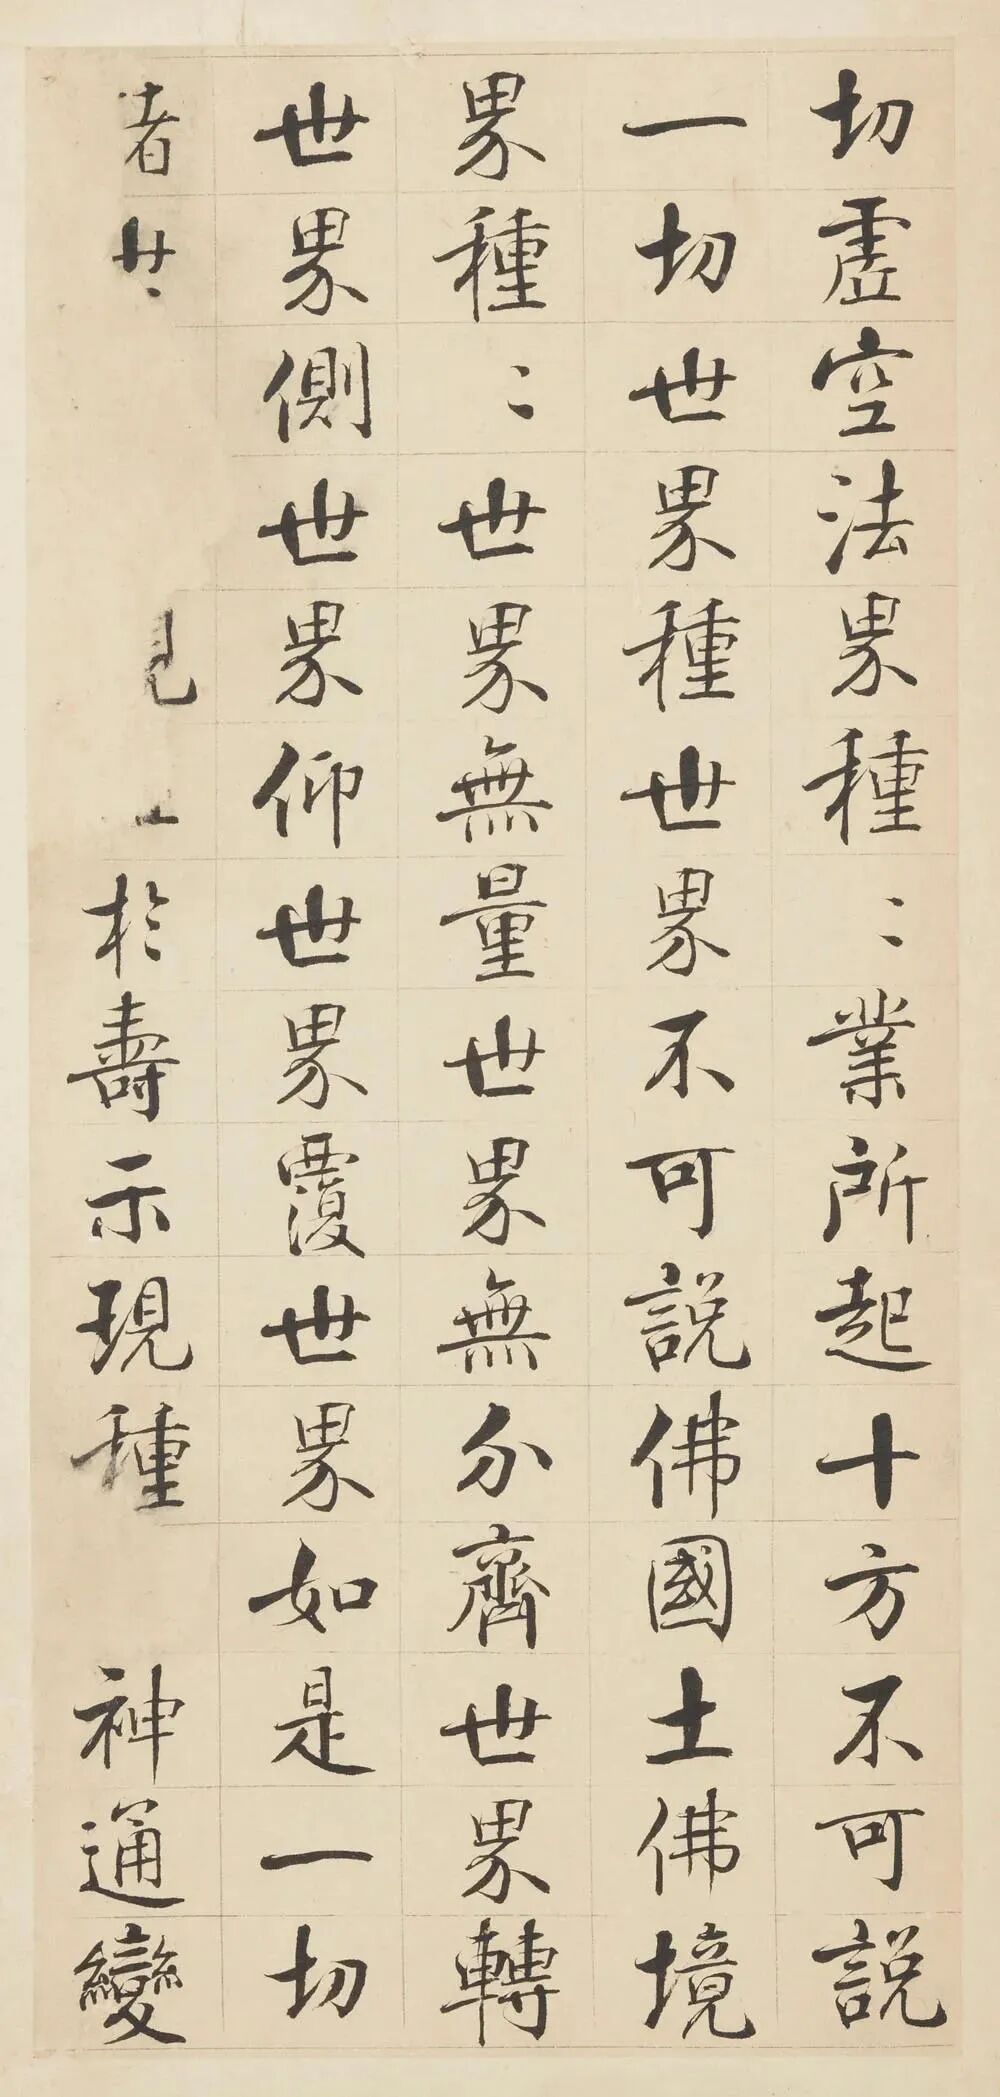 切虚空法界種〻業所起十方不可説
一切世界種世界不可説佛國土佛境
界種〻世界無量世界無分齊世界轉
世界側世界仰世界覆世界如是一切
者於壽示現種神通變